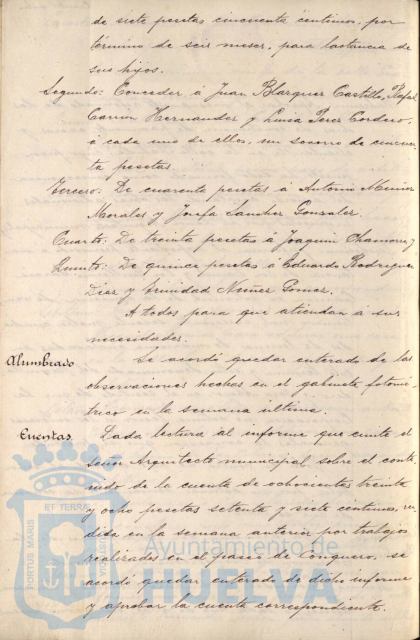 de siete pesetas cincuenta céntimos, por
término de seis meses, para lactancia de
sus hijos.
Segundo: Conceder á Juan Blazquez Castillo, Rafael
Carrion Hernandez y Luisa Perez Cordero,
á cada uno de ellos, un socorro de cincuen-
ta pesetas
Tercero: De cuarenta pesetas á Antonio Muñoz
Morales y Josefa Sanchez Gonzalez.
Cuarto: De treinta pesetas á Joaquin Chamorro y
Quinto: De quince pesetas á Eduardo Rodriguez
Diaz y Trinidad Nuñez Gomez.
A todos para que atiendan á sus
necesidades.
Alumbrado Se acordó quedar enterado de las
observaciones hechas en el gabinete fotomé-
trico en la semana última.
Cuentas. Dada lectura al informe que emite el
señor Arquitecto municipal sobre el conte-
nido de la cuenta de ochocientas treinta
y ocho pesetas setenta y siete centimos, ren-
dida en la semana anterior por trabajos
realizados en el paseo de Conquero, se
acordó quedar enterado de dicho informe
y aprobar la cuenta correspondiente.
PORTUS MARIS ET TERRAE
Ayuntamiento de
HUELVA